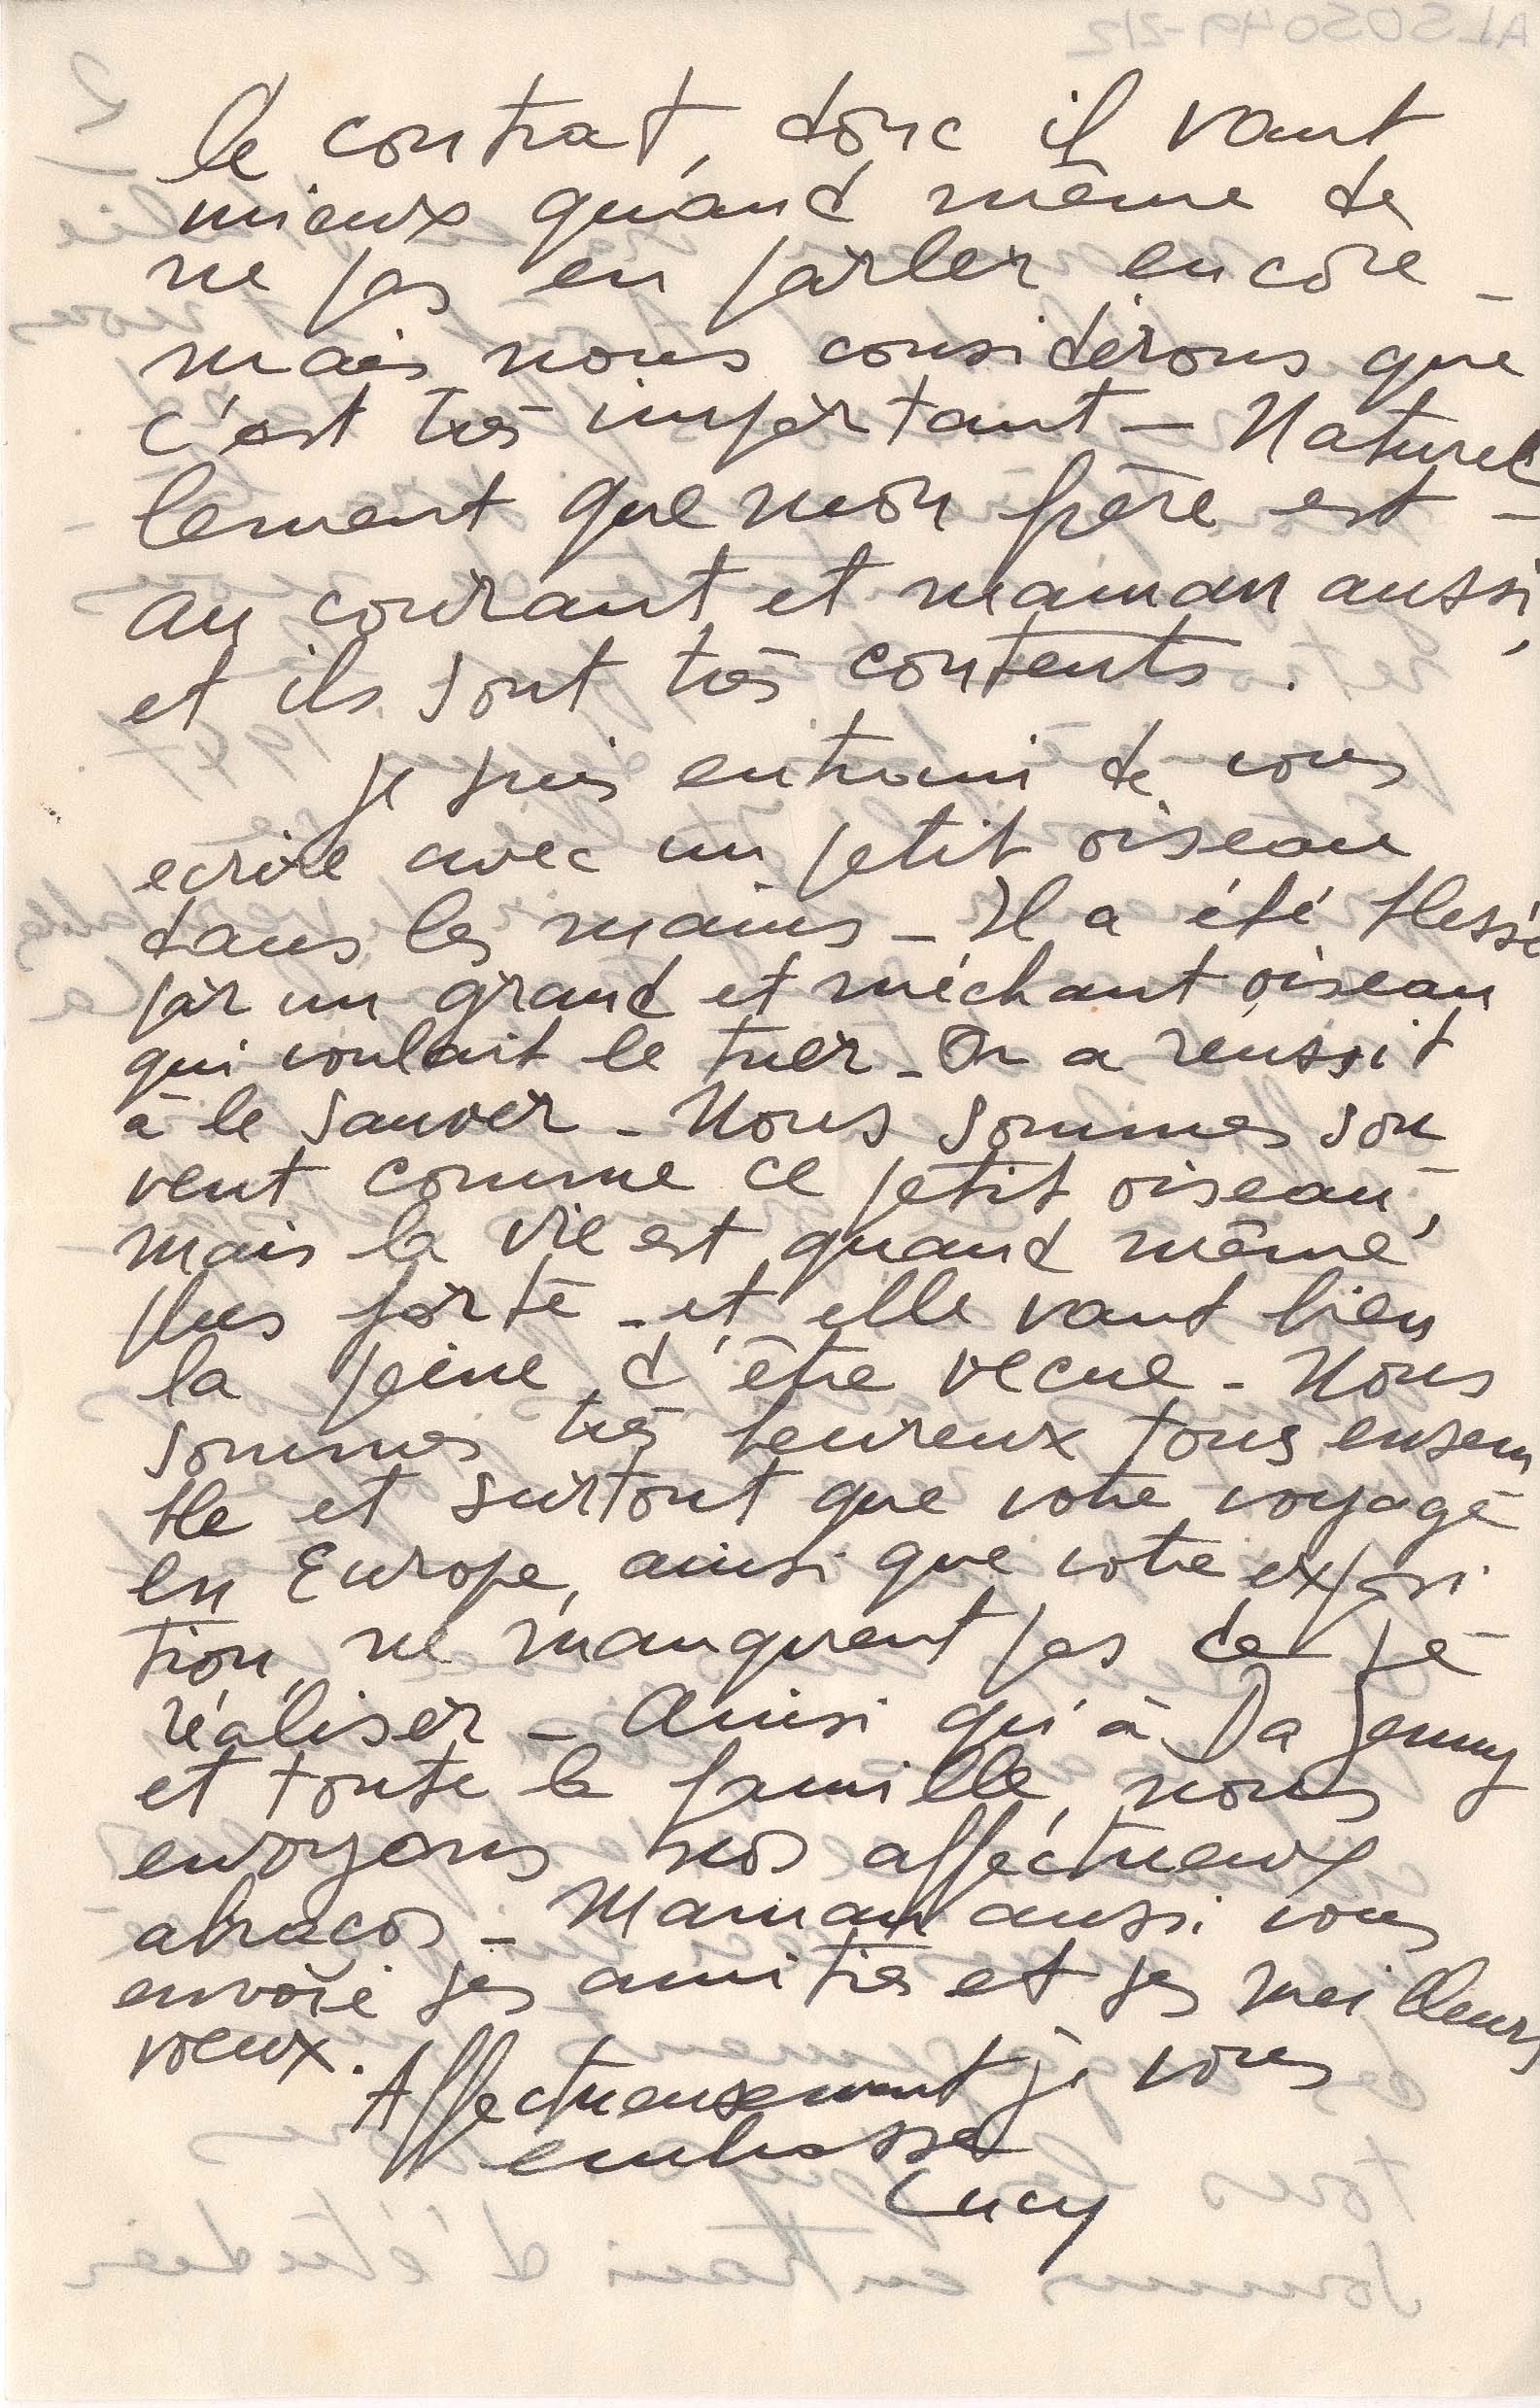 le contrat, donc il vaut
mieux quand même de
ne pas en parler encore -
mais nous considérons que
c'est très important - Naturel
lement que mon frère est -
au courant, et maman aussi,
et ils sont très contents.
je suis entrain de vous
ecrire avec un petit oiseau
dans les mains - Il a été blessé
par un grand et méchant oiseau
qui voulait le tuer - On a reussit
à le sauver - Nous sommes sou
vent comme ce petit oiseau,
mais la vie est quand même
plus forte - et elle vaut bien
la peine d'être vecue - Nous
sommes très heureux tous ensem
ble et surtout que votre voyage
en Europe, ainsi que votre exposi
tion, ne manquent pas de se
réaliser - Ainsi qu'à Da Jenny
et toute la famille, nous
envoyons nos afféctueux
abraços - Maman aussi vous
envoie ses amities et ses meilleurs
voeux.
Affectueusement je vous
embrasse
Lucy